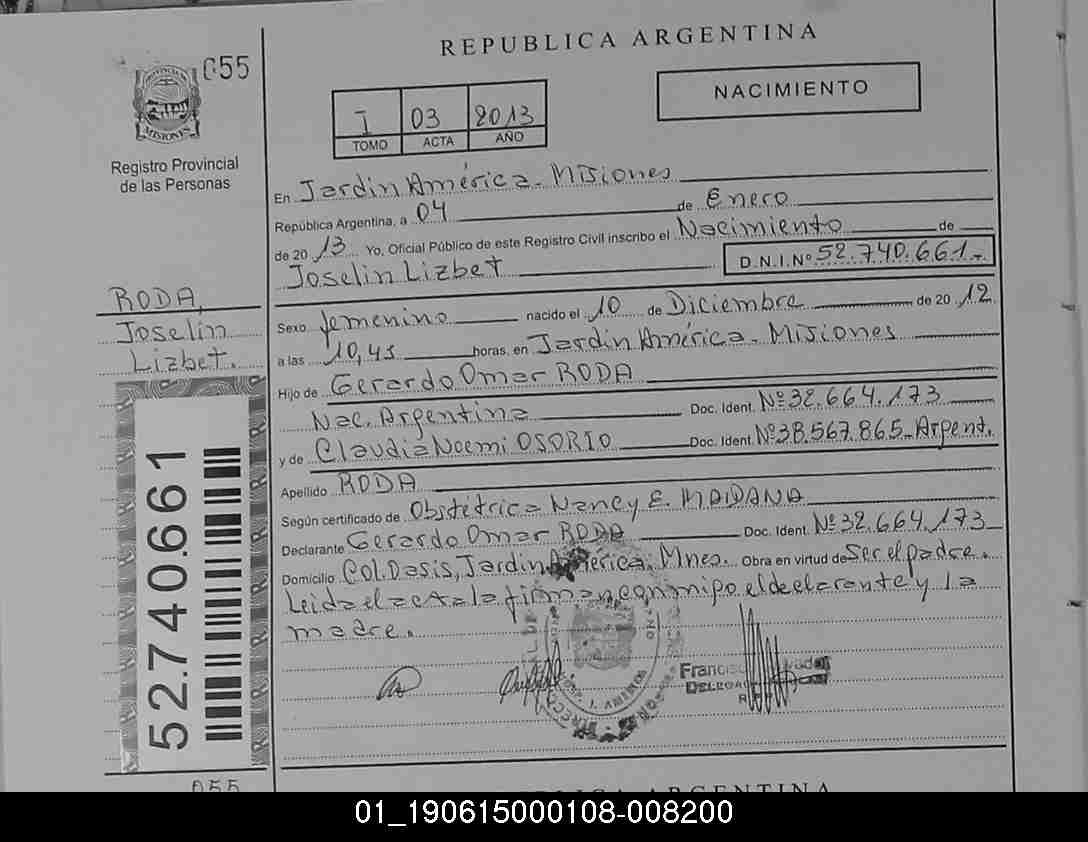 055
PROVINCIA DE
MISIONES
Registro Provincial
de las Personas
RODA,
Joselin
Lizbet.
52.740.661
055
REPUBLICA ARGENTINA
I 03 2013
TOMO ACTA AÑO
NACIMIENTO
En Jardin América. Misiones
República Argentina, a 04 de Enero
de 20 13 Yo, Oficial Público de este Registro Civil inscribo el Nacimiento de
Joselin Lizbet D.N.I.Nº 52.740.661.-
Sexo femenino nacido el 10 de Diciembre de 20 12
a las 10,45 horas, en Jardin América. Misiones
Hijo de Gerardo Omar RODA
Nac. Argentina Doc. Ident. Nº 32.664.173
y de Claudia Noemi OSORIO Doc. Ident. Nº 38.567.865 Argent.
Apellido RODA
Según certificado de Obstétrica Nancy E. MAIDANA
Declarante Gerardo Omar RODA Doc. Ident. Nº 32.664.173
Domicilio Col. Oasis, Jardin América. Mnes. Obra en virtud de Ser el padre.
Leida el acta la firman conmigo el declarante y la
madre.
REPUBLICA ARGENTINA
01_190615000108-008200